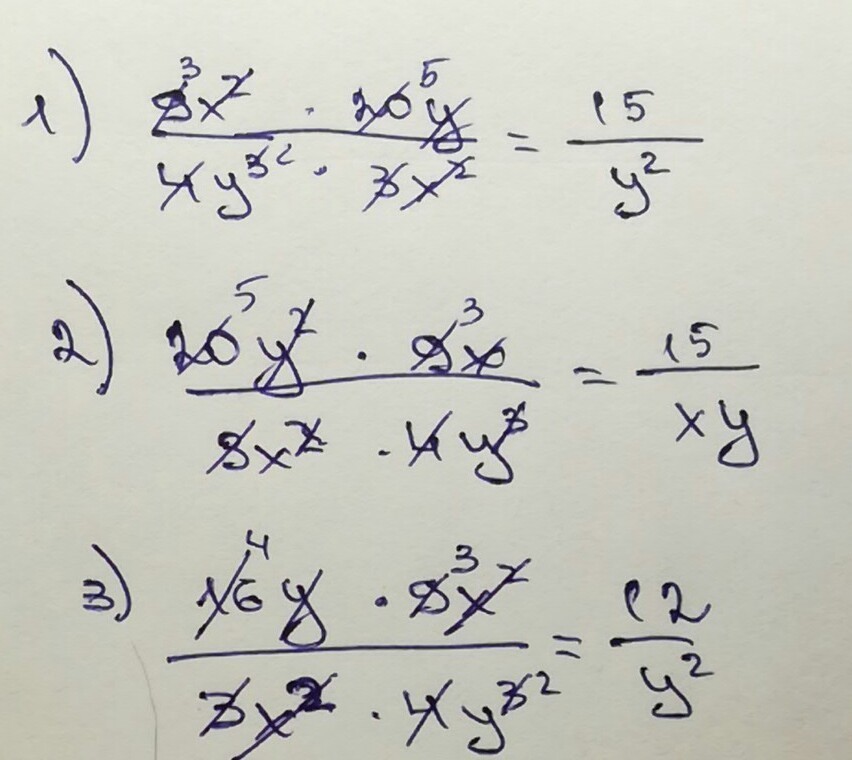 1) 9³x² · 20⁵y / 4y³² · 3x² = 15 / y²
2) 20⁵y² · 9³x / 3x² · 4y³ = 15 / xy
3) 16⁴y · 9³x² / 3x² · 4y³² = 12 / y²